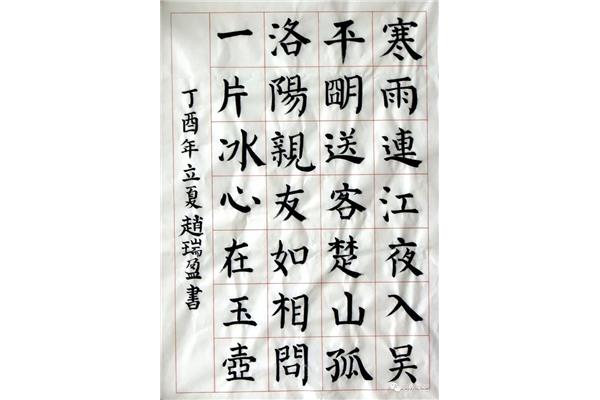 寒雨連江夜入吴
平明送客楚山孤
洛陽親友如相問
一片冰心在玉壺
丁酉年立夏趙瑞盈書